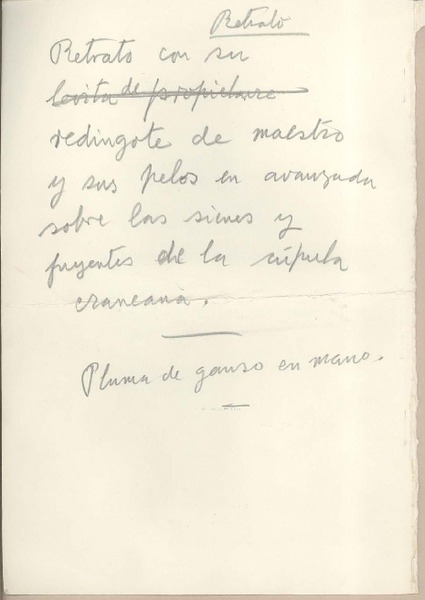 Retrato
Retrato con su
levita de propietario
redingote de maestro
y sus pelos en avanzada
sobre las sienes y
fuyentes de la cúpula
craneana.
Pluma de ganso en mano.